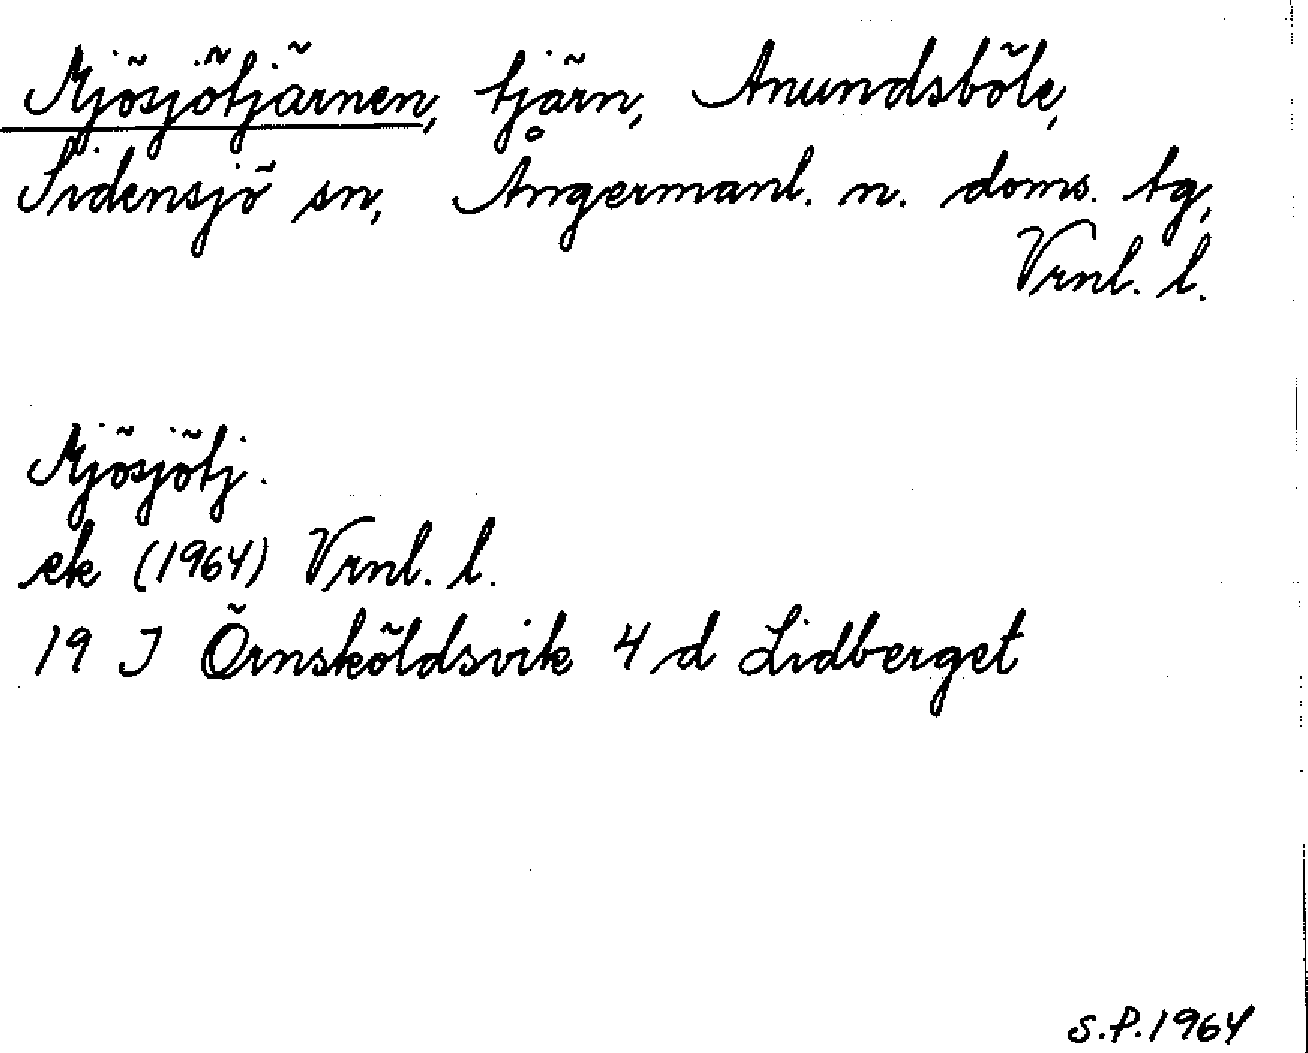 Mjösjötjärnen, tjärn, Anundsböle,
Sidensjö sn, Ångermanl. n. doms. tg,
Vrnl. l.
Mjösjötj.
ek (1964) Vrnl. l.
19 J Örnsköldsvik 4 d Lidberget
S.P. 1964